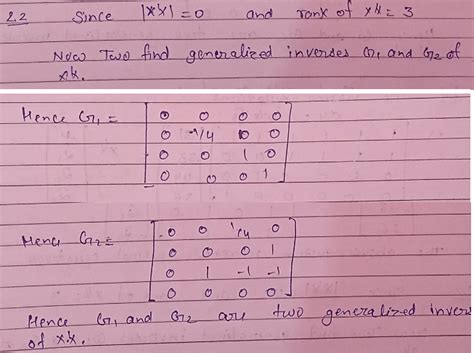 2.2 Since |x'x| = 0 and rank of x'x = 3
Now Two find generalized inverses G1 and G2 of
x'x.
Hence G1 =
0 0 0 0
0 -1/4 0 0
0 0 1 0
0 0 0 1
Hence G2 =
0 0 1/4 0
0 0 0 1
0 1 -1 -1
0 0 0 0
Hence G1 and G2 are two generalized invers
of x'x.